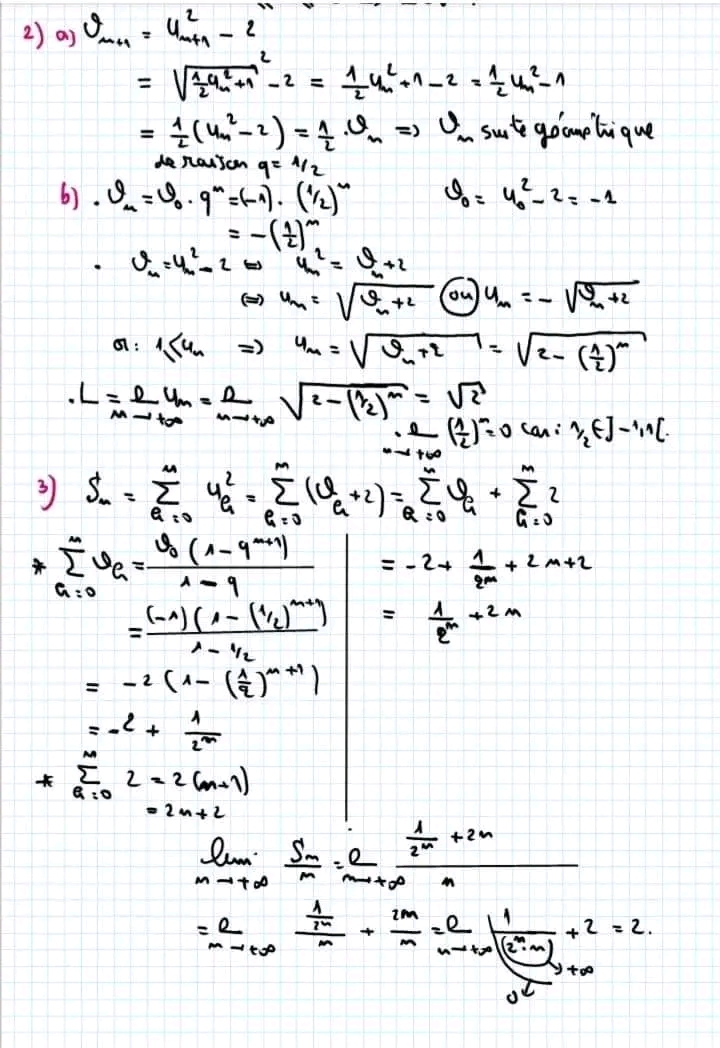 2) a) 𝒱ₙ₊₁ = uₙ₊₁² − 2
= √(½uₙ²+1)² − 2 = ½uₙ² + 1 − 2 = ½uₙ² − 1
= ½(uₙ² − 2) = ½ . 𝒱ₙ ⇒ 𝒱ₙ suite géométrique
de raison q = 1/2
b) . 𝒱ₙ = 𝒱₀ . qⁿ = (−1) . (1/2)ⁿ 𝒱₀ = u₀² − 2 = −1
= −(½)ⁿ
. 𝒱ₙ = uₙ² − 2 ⇔ uₙ² = 𝒱ₙ + 2
⇔ uₙ = √(𝒱ₙ+2) ou uₙ = −√(𝒱ₙ+2)
or : 1 ≤ uₙ ⇒ uₙ = √(𝒱ₙ+2) = √(2 − (½)ⁿ)
. L = ℓ uₙ = ℓ √(2 − (1/2)ⁿ) = √2
n→+∞ n→+∞
. ℓ (½)ⁿ = 0 car : 1/2 ∈ ]−1,1[.
n→+∞
3) Sₙ = Σₖ₌₀ⁿ uₖ² = Σₖ₌₀ⁿ (𝒱ₖ+2) = Σₖ₌₀ⁿ 𝒱ₖ + Σₖ₌₀ⁿ 2
* Σₖ₌₀ⁿ 𝒱ₖ = 𝒱₀(1 − qⁿ⁺¹) / (1 − q)
= (−1)(1 − (1/2)ⁿ⁺¹) / (1 − 1/2)
= −2(1 − (½)ⁿ⁺¹)
= −2 + 1/2ⁿ
* Σₖ₌₀ⁿ 2 = 2(n+1)
= 2n+2
= −2 + 1/2ⁿ + 2n+2
= 1/2ⁿ + 2n
lim Sₙ/n = ℓ (1/2ⁿ + 2n)/n
n→+∞ n→+∞
= ℓ (1/2ⁿ)/n + 2n/n = ℓ 1/(2ⁿ.n) + 2 = 2.
n→+∞ n→+∞ +∞
0